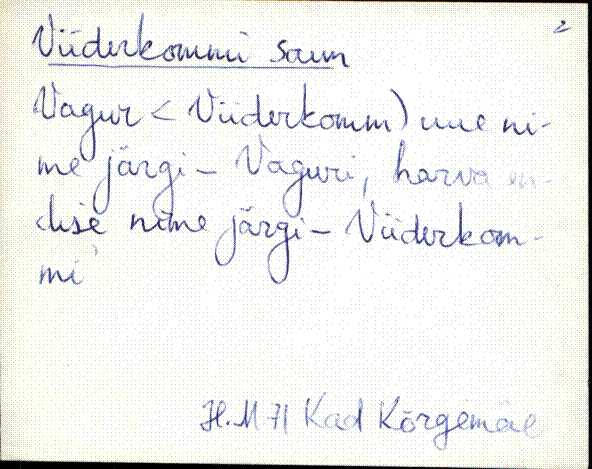 2
Viiderkommi saun
Vagur < Viiderkomm) uue ni-
me järgi – Vaguri, harva en-
dise nime järgi – Viiderkom-
mi
H.M 71 Kad Kõrgemäe